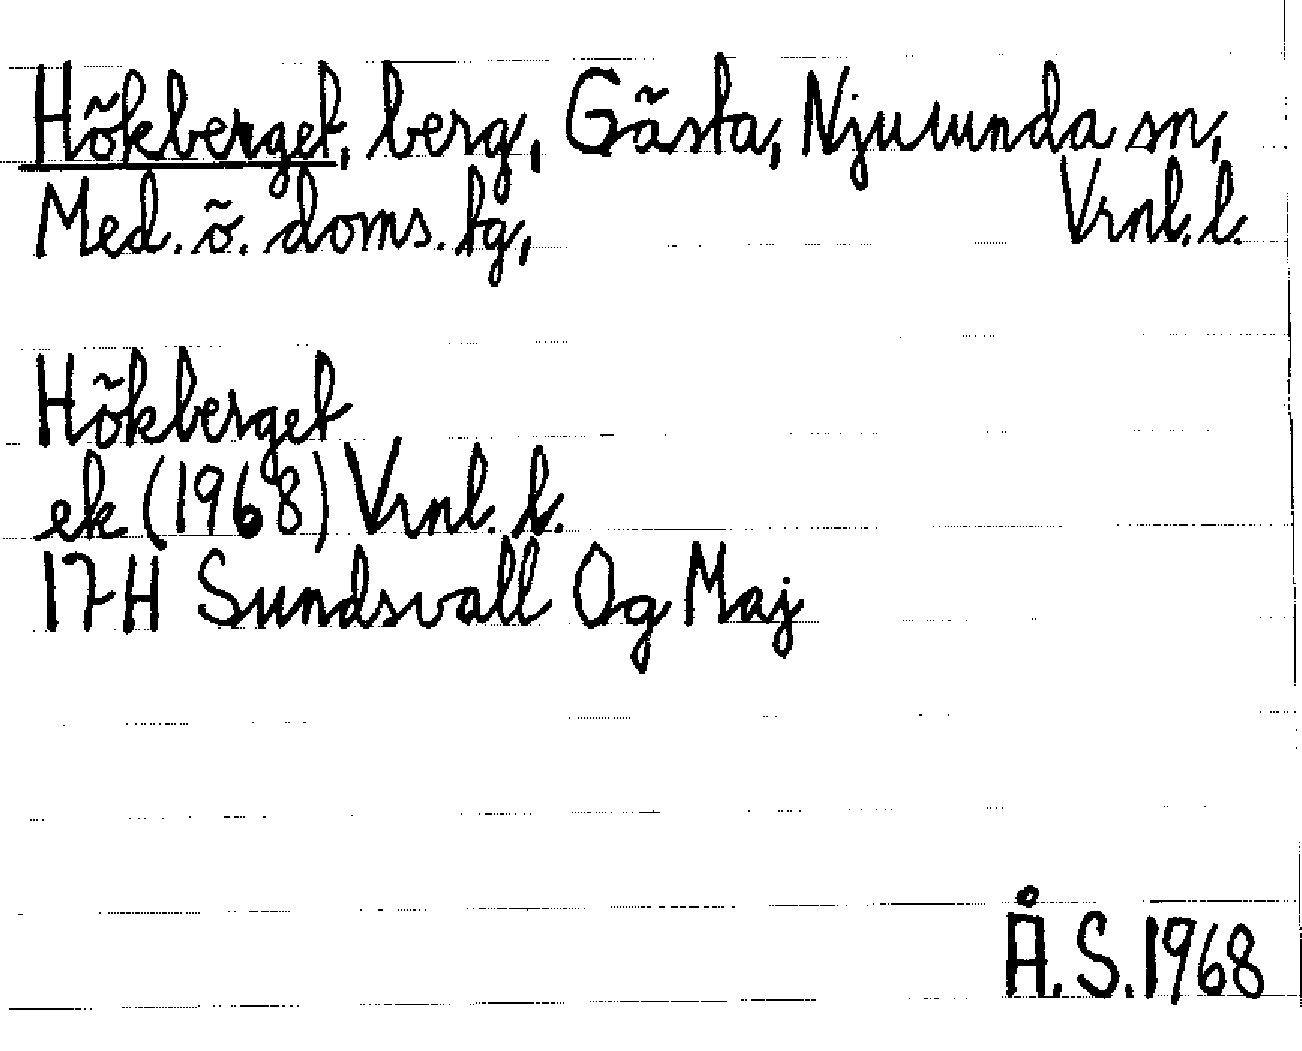 Hökberget, berg, Gästa, Njurunda sn,
Med. ö. doms. tg, Vrnl. l.
Hökberget
ek (1968) Vrnl. l.
17H Sundsvall Og Maj
Å. S. 1968